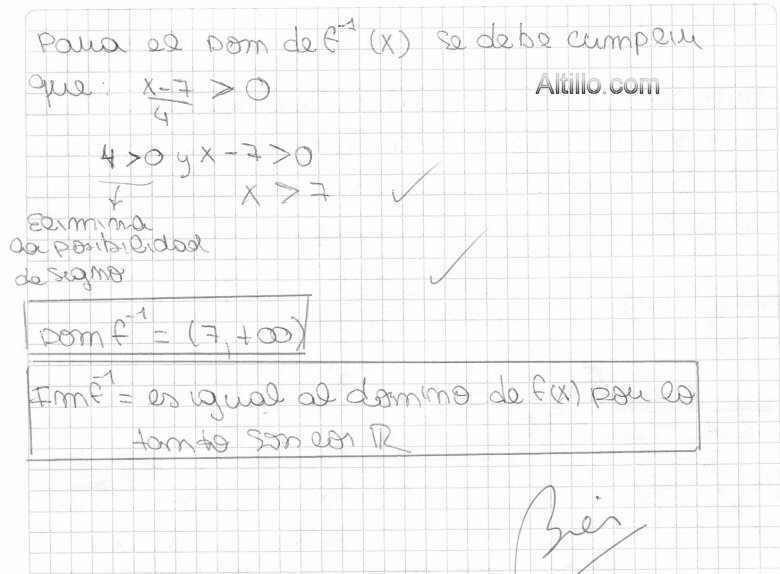 Para el Dom de f⁻¹(x) se debe cumplir
que: x-7/4 > 0
Altillo.com
4 > 0 y x - 7 > 0
x > 7
Elimina
la posibilidad
de signo
Dom f⁻¹ = (7, +∞)
Im f⁻¹ = es igual al dominio de f(x) por lo
tanto son los ℝ
Bien